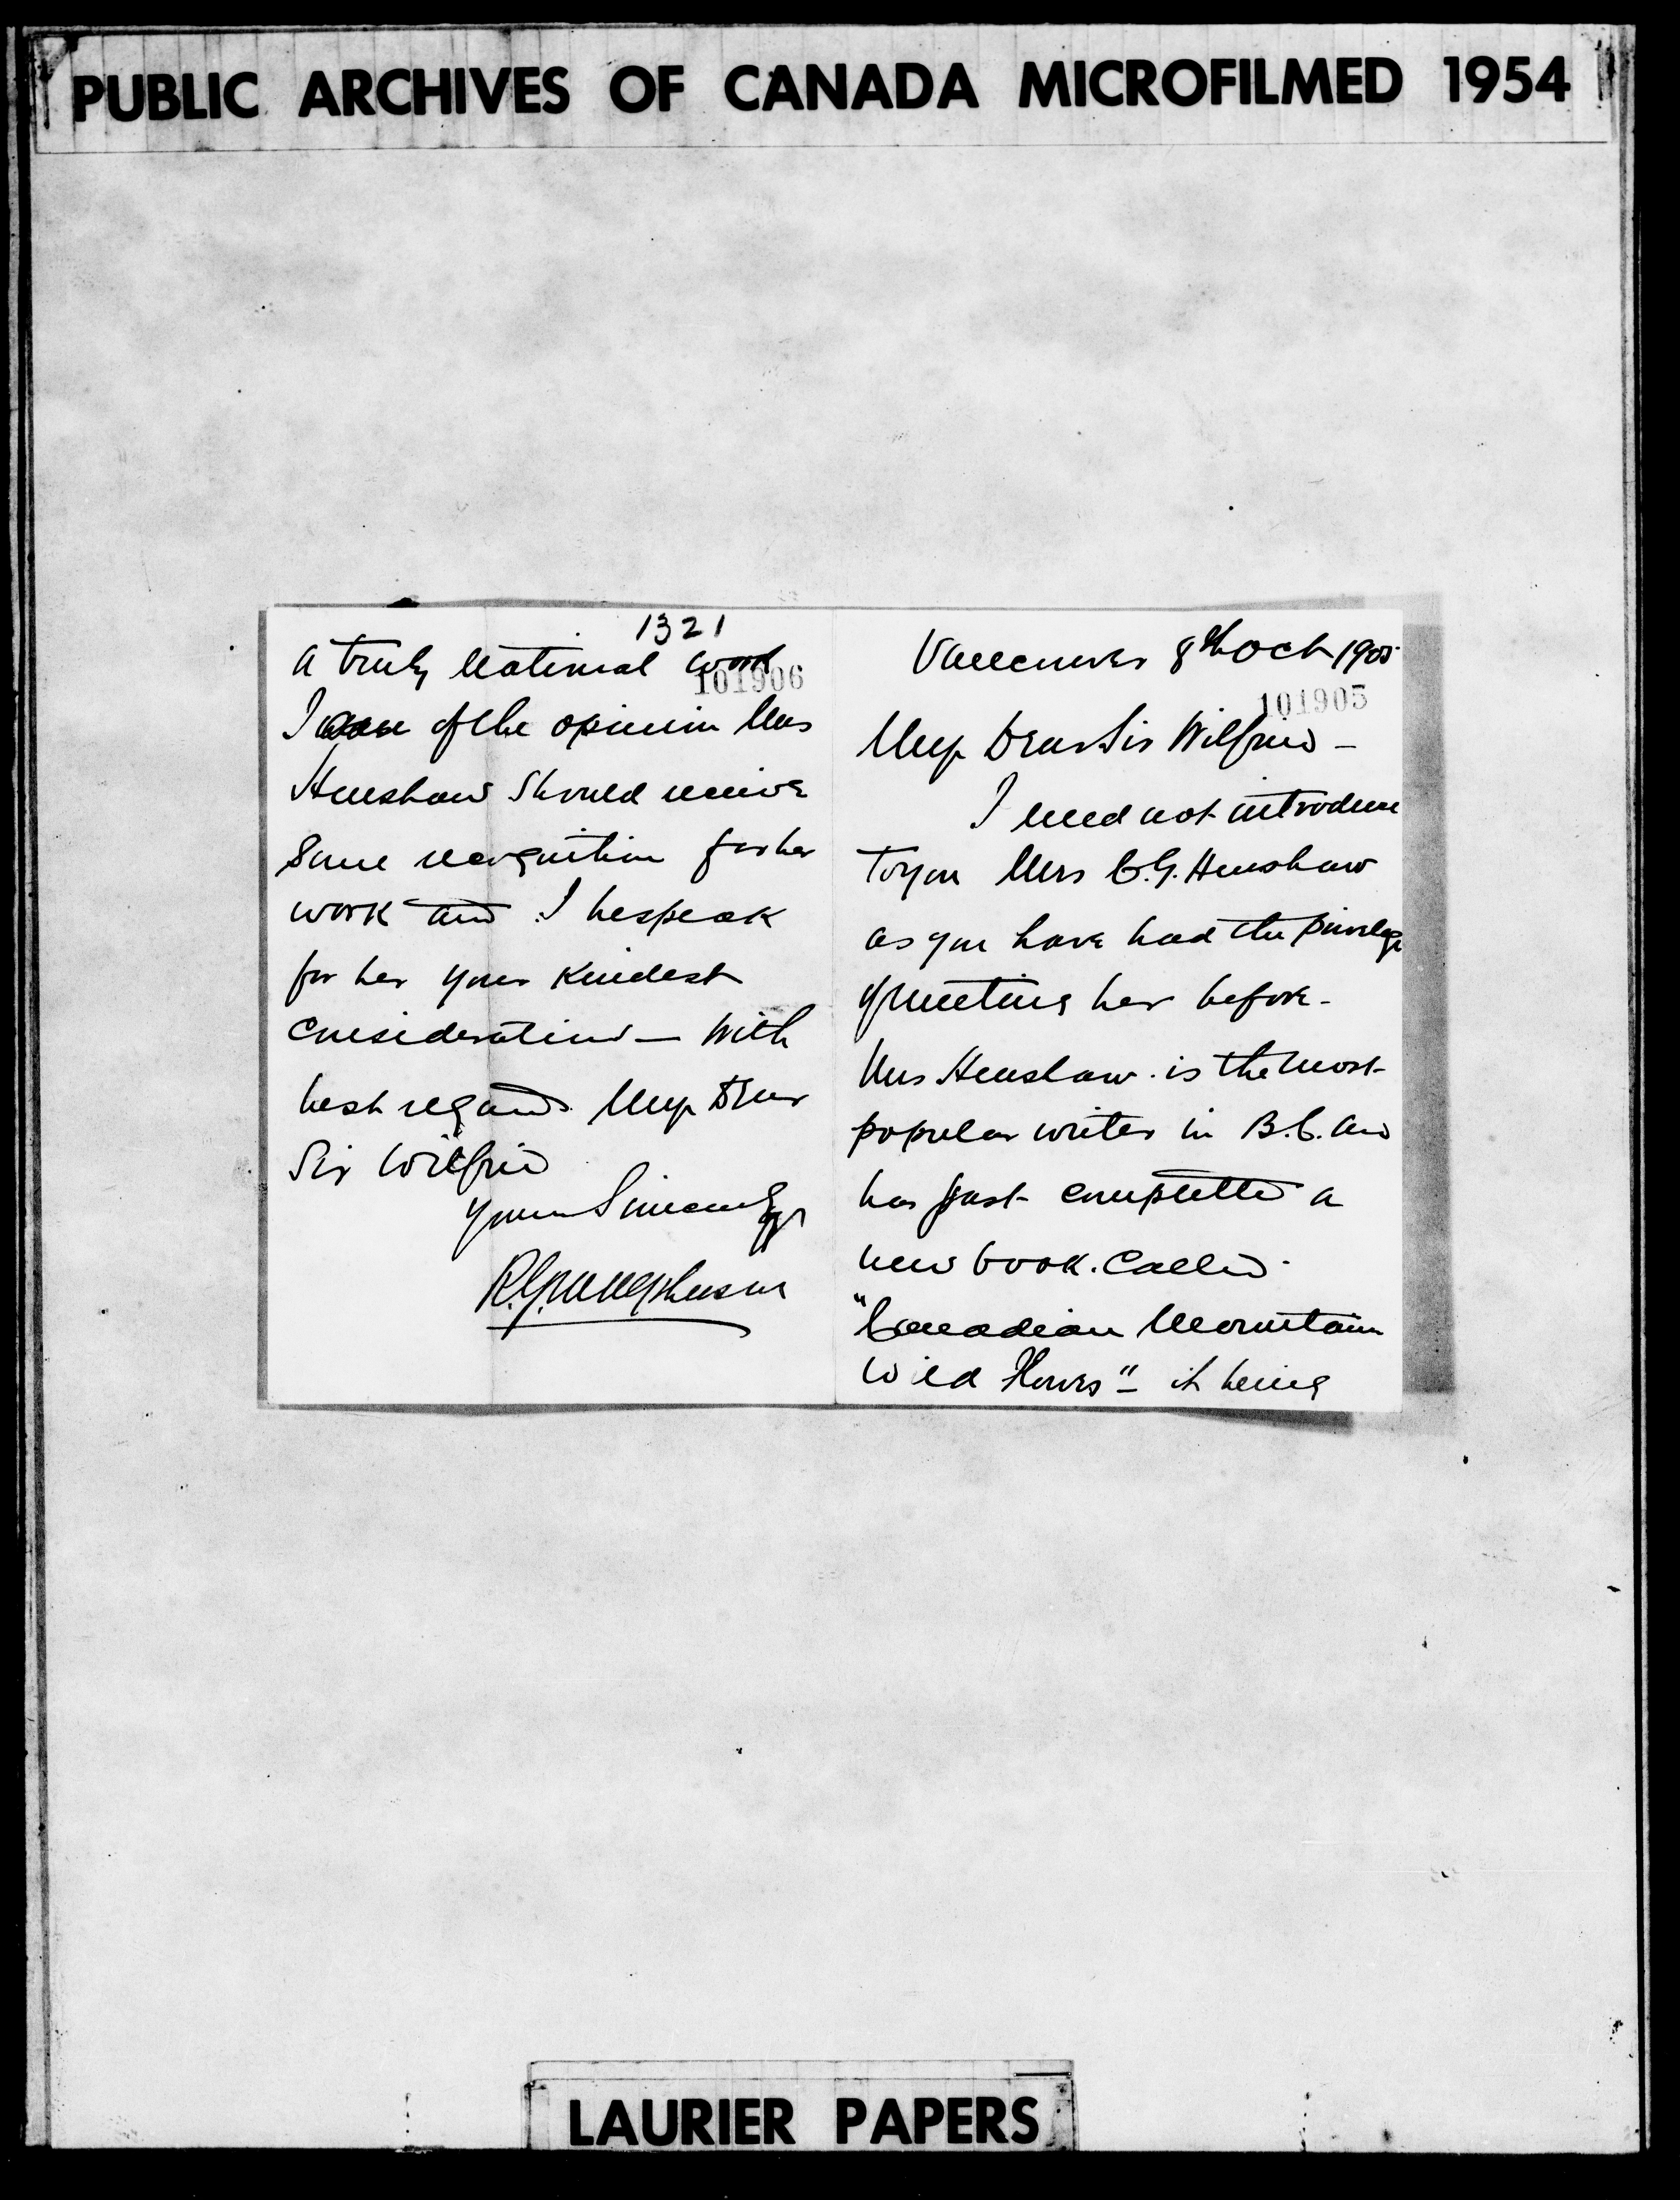 PUBLIC ARCHIVES OF CANADA MICROFILMED 1954
Vancouver 8th Oct 1905
101905
My Dear Sir Wilfrid –
I need not introduce
to you Mrs C.G. Henshaw
as you have had the privilege
of meeting her before –
Mrs Henshaw is the most
popular writer in B.C. and
has just completed a
new book. Called
"Canadian Mountain
Wild Flowers" – it being
1321
a truly National work
101906
I am of the opinion Mrs
Henshaw should receive
some recognition for her
work and I bespeak
for her your kindest
consideration – With
best regards My Dear
Sir Wilfrid
Yours Sincerely
R.G. Macpherson
LAURIER PAPERS